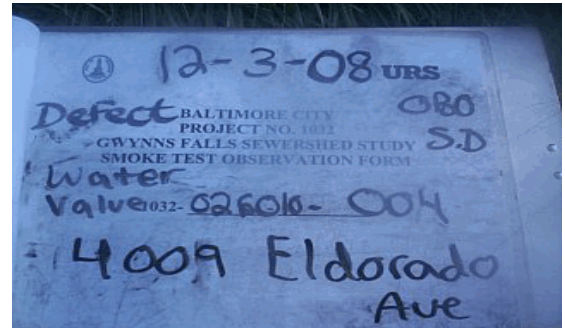 12-3-08 URS
Defect BALTIMORE CITY OBO
PROJECT NO. 1032 S.D
GWYNNS FALLS SEWERSHED STUDY
SMOKE TEST OBSERVATION FORM
Water
Value 1032-026010-004
4009 Eldorado
Ave